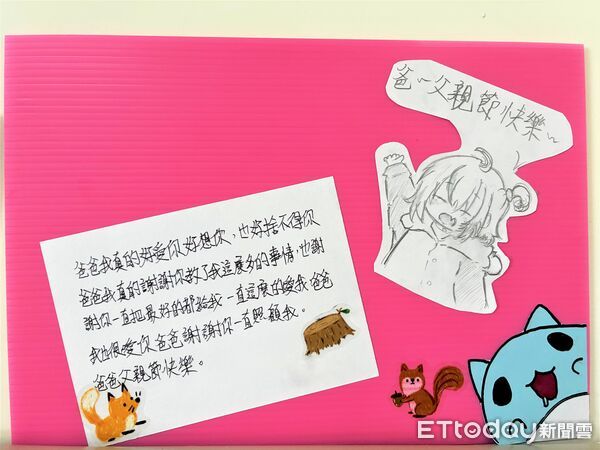 爸~父親節快樂~
爸爸我真的好愛你好想你,也好捨不得你
爸爸我真的謝謝你教了我這麼多的事情,也謝
謝你一直把最好的都給我一直這麼的愛我爸爸
我也很愛你爸爸謝謝你一直照顧我。
爸爸父親節快樂。
ETtoday新聞雲